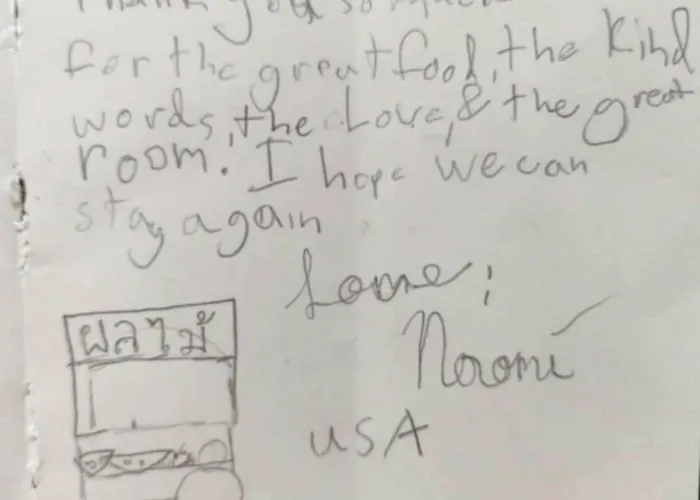 Thank you so much
for the great food, the kind
words, the Love, & the great
room. I hope we can
stay again
Love,
Naomi
USA
ผลไม้